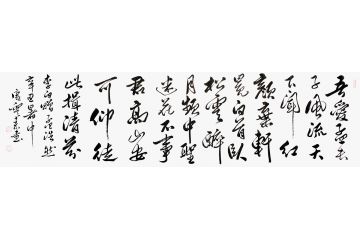 吾愛孟夫
子風流天
下聞紅
顏棄軒
冕白首臥
松雲醉
月頻中聖
迷花不事
君高山安
可仰徒
此揖清芬
李白贈孟浩然
辛丑暑中